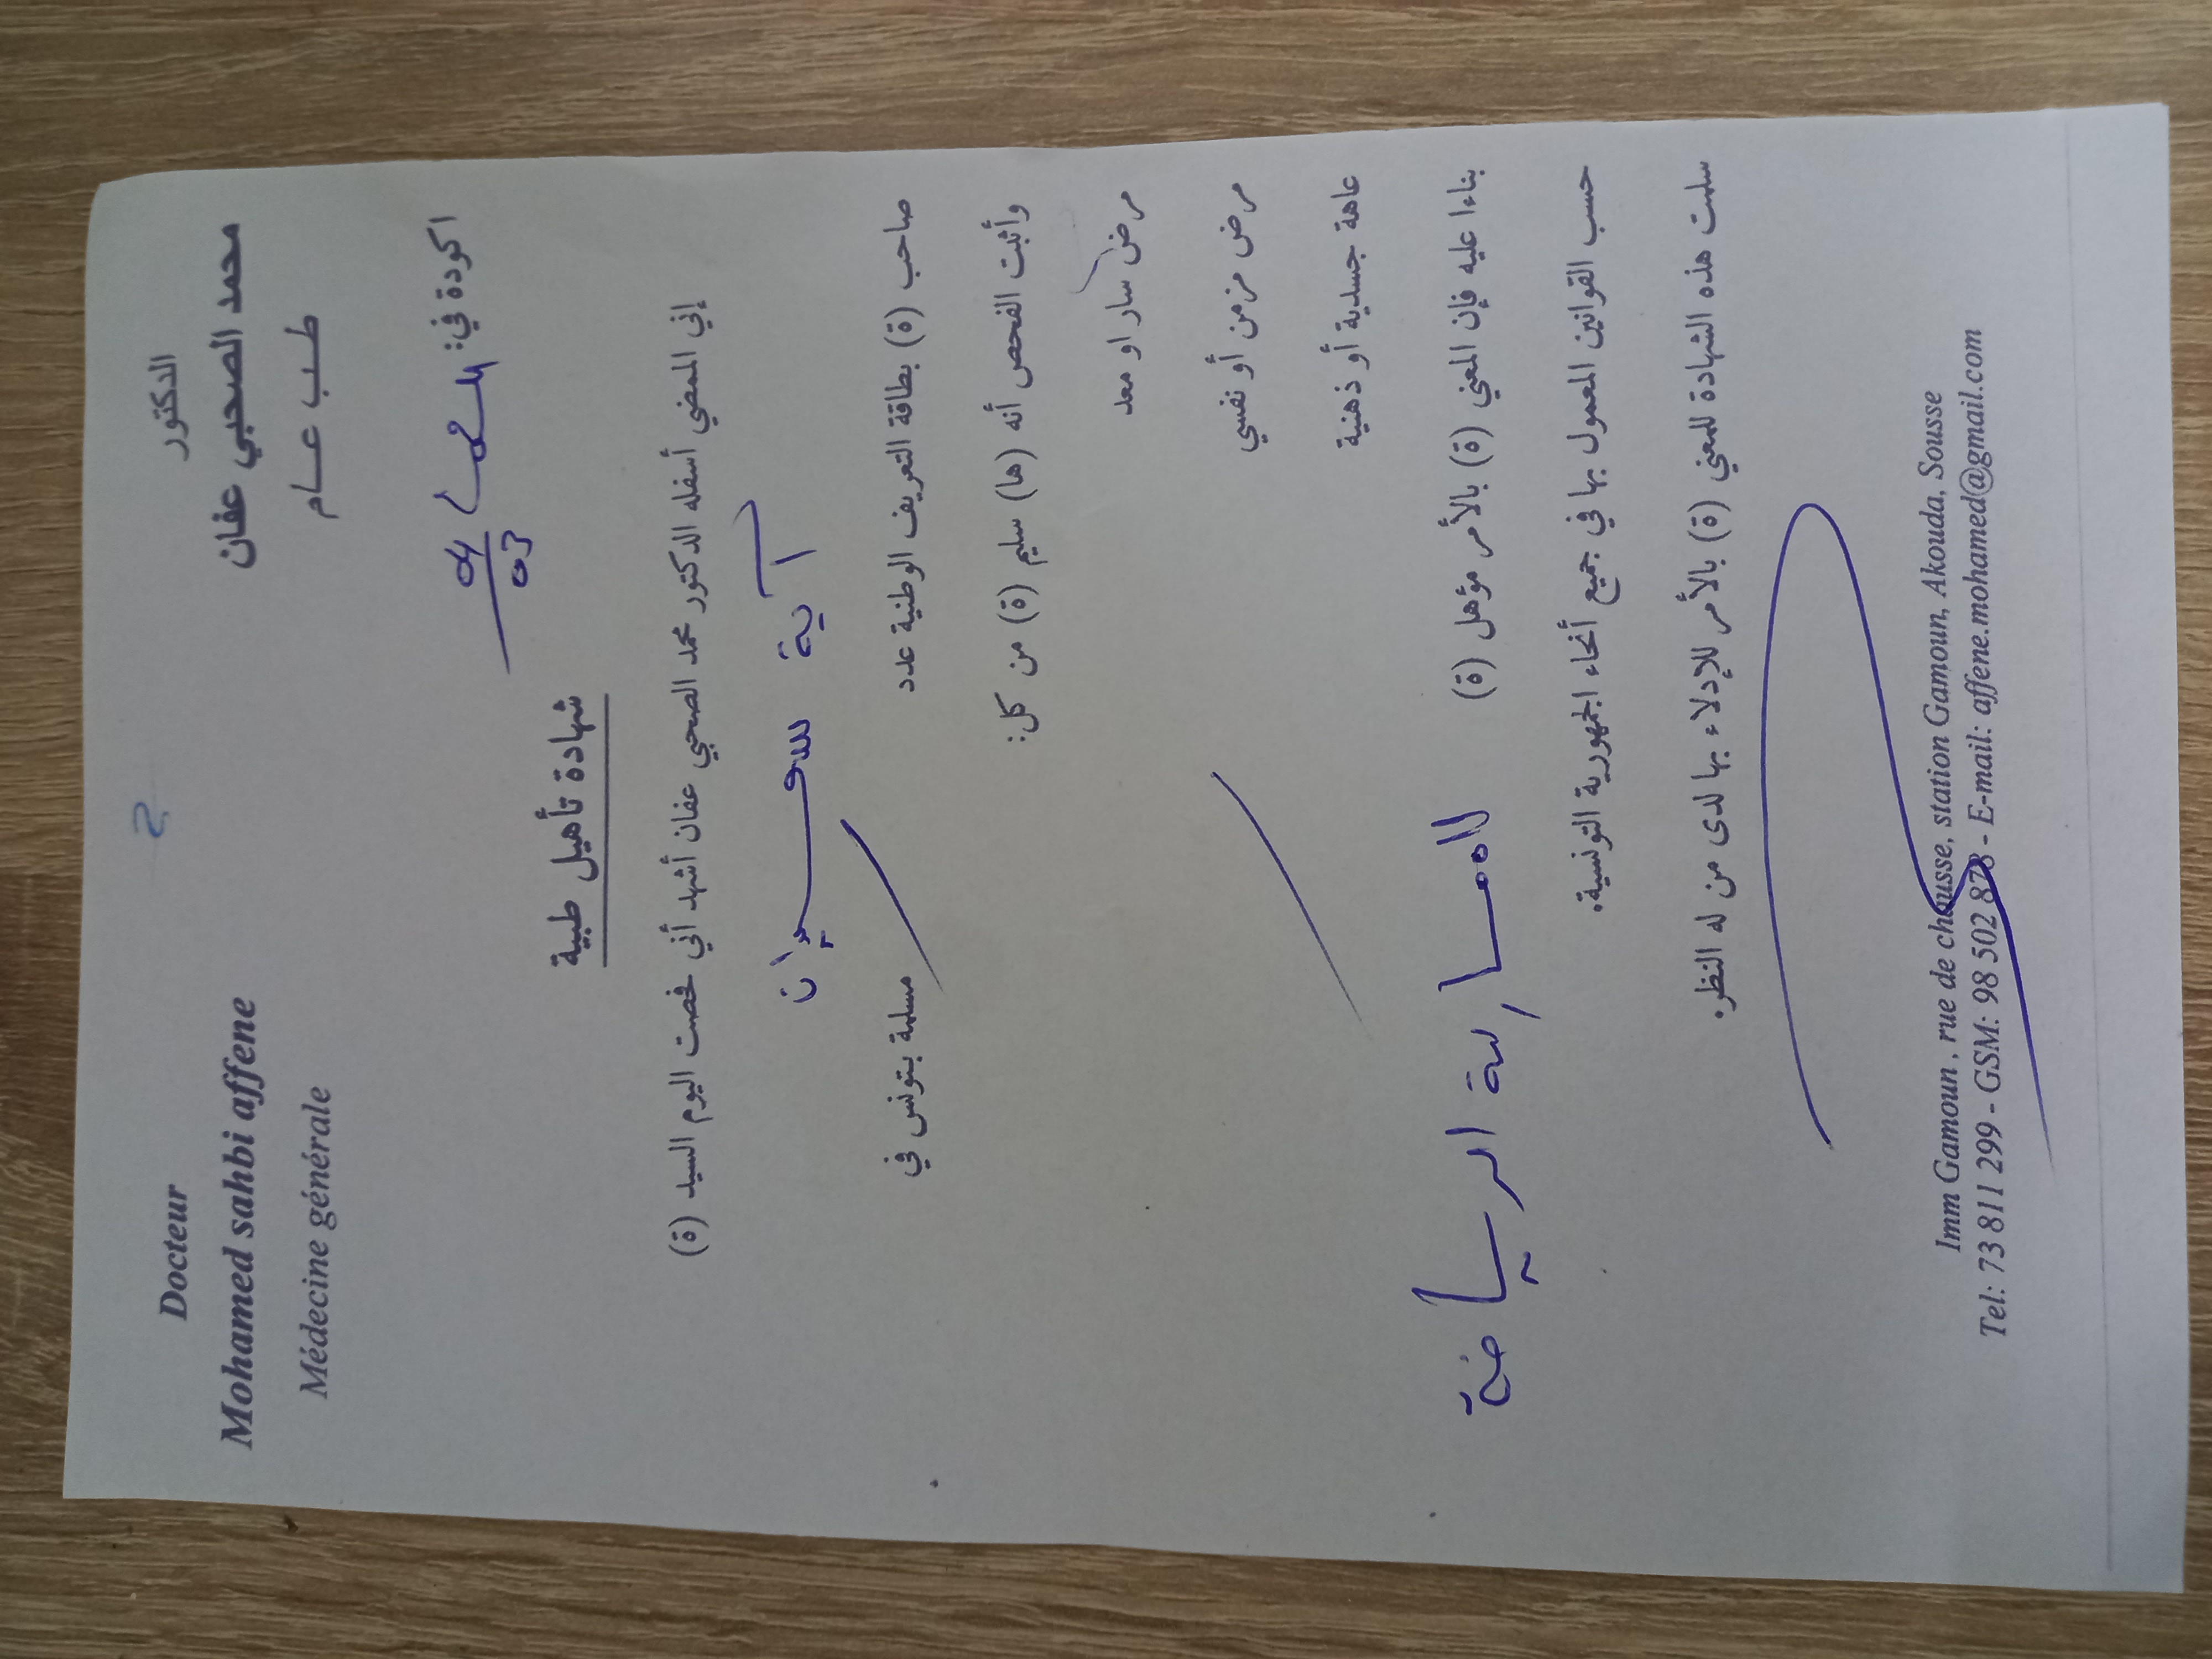 Docteur الدكتور
Mohamed sahbi affene محمد الصحبي عفان
Médecine générale طب عام
اكودة في:
شهادة تأهيل طبية
إني الممضي أسفله الدكتور محمد الصحبي عفان أشهد أني فحصت اليوم السيد (ة)
آية
صاحب (ة) بطاقة التعريف الوطنية عدد مسلمة بتونس في
وأثبت الفحص أنه (ها) سليم (ة) من كل:
مرض سار او معد
مرض مزمن أو نفسي
عاهة جسدية أو ذهنية
بناءا عليه فإن المعني (ة) بالأمر مؤهل (ة) الرياضة
حسب القوانين المعمول بها في جميع أنحاء الجمهورية التونسية.
سلمت هذه الشهادة للمعني (ة) بالأمر للإدلاء بها لدى من له النظر.
Imm Gamoun , rue de chausse, station Gamoun, Akouda, Sousse
Tel: 73 811 299 - GSM: 98 502 878 - E-mail: affene.mohamed@gmail.com